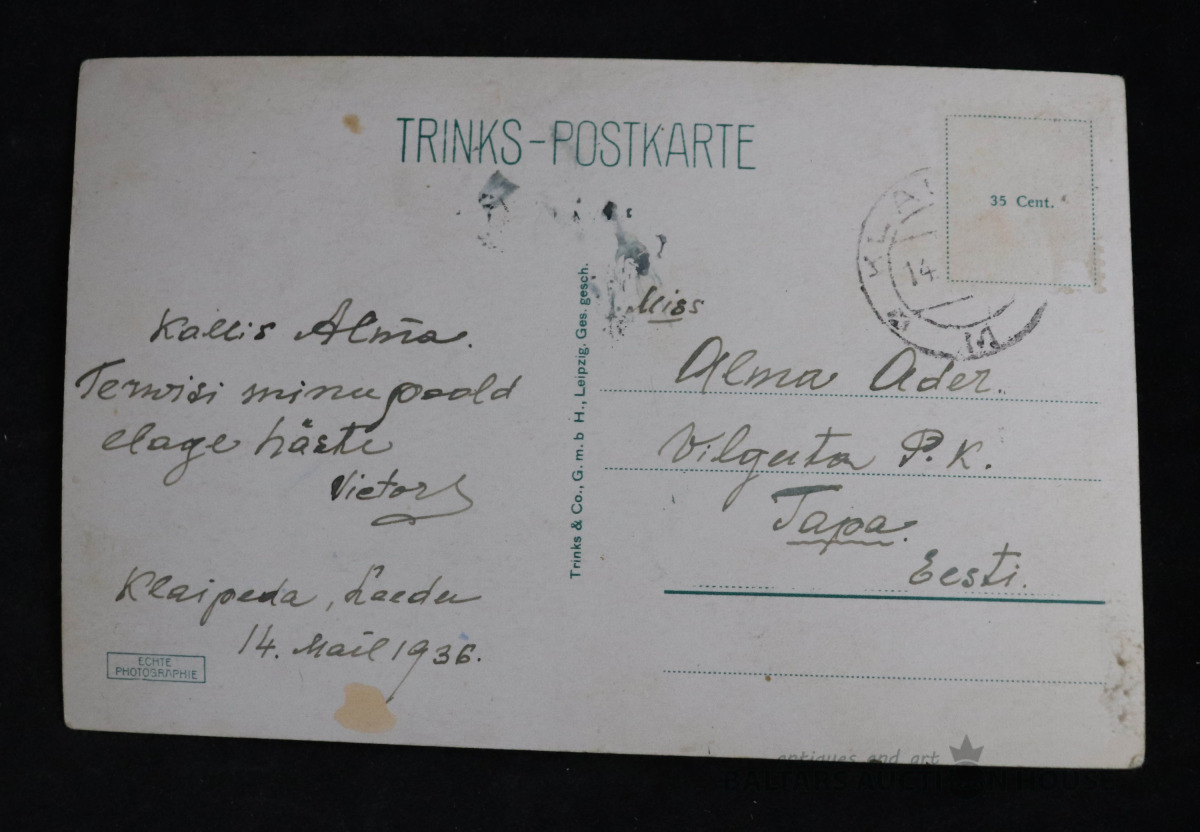 TRINKS-POSTKARTE
35 Cent.
KLAI
14.
VI
Trinks & Co., G. m. b H., Leipzig. Ges. gesch.
Kallis Alma.
Terwisi minu poold
elage hästi
Victor
Klaipeda, Leedu
14. Mail 1936.
ECHTE
PHOTOGRAPHIE
Miss
Alma Ader.
Vilguta P.K.
Tapa.
Eesti.
antiques and art
BALTARS AUCTION HOUSE